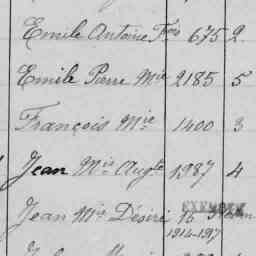 Emile Antoine Fois 675 2
Emile Pierre Mie 2185 5
François Mie 1400 3
Jean Mis Augte 1987 4
Jean Mie Désiré 15
1914-197